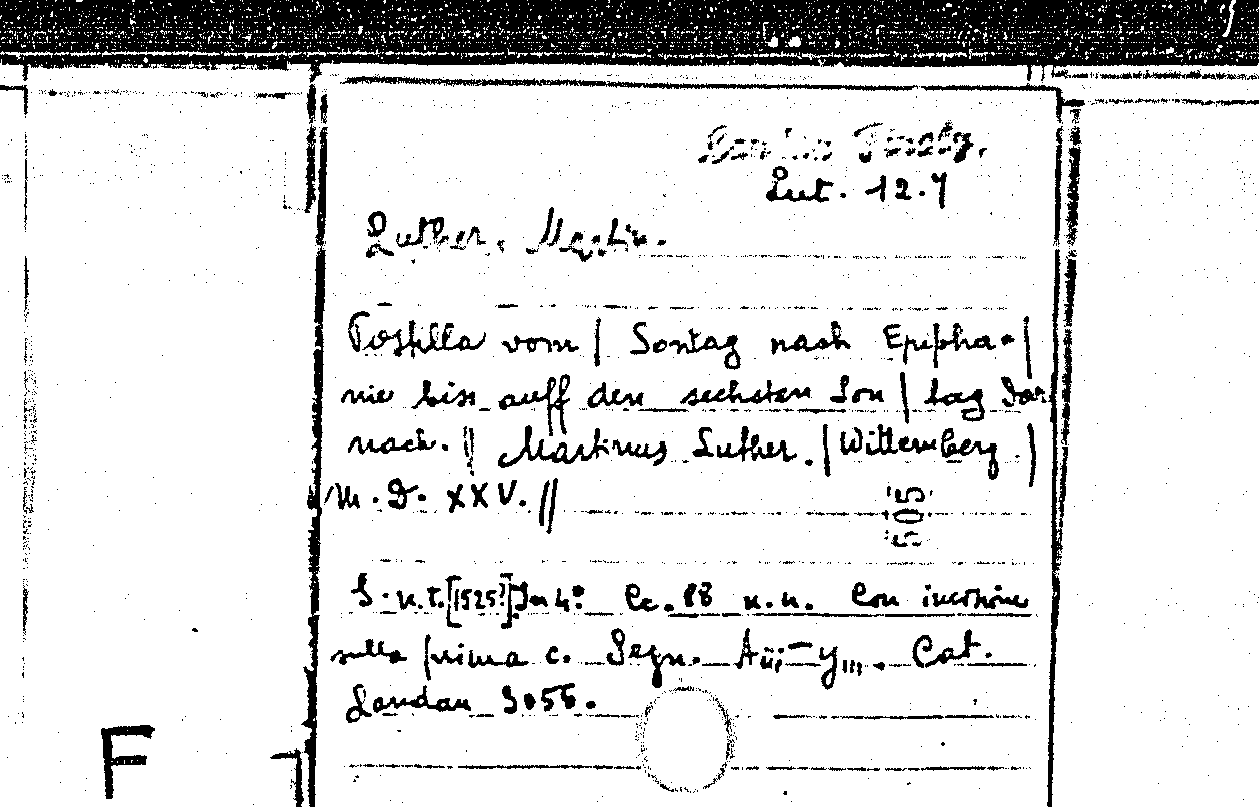 Lut. 12.7
Luther, Martin.
Postilla vom | Sontag nach Epipha= |
nie bisz auff den sechsten Son | tag dar
nach. || Martinus Luther. | Wittemberg. |
M. D. XXV. ||
505
S. n. t. [1525?] In 4° Cc. 88 n. n. Con incisione
sulla prima c. Segn. Aiii-Yiii. Cat.
Landau
F